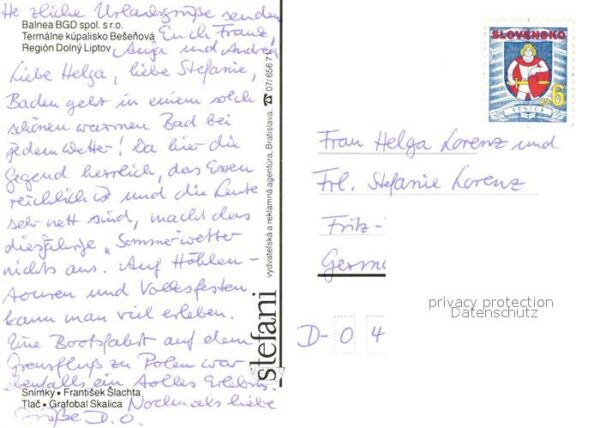 Herzliche Urlaubsgrüße senden
Euch Franz,
Balnea BGD spol. s.r.o.
Termálne kúpalisko Bešeňová
Región Dolný Liptov
Anja und Andrea
Liebe Helga, liebe Stefanie,
Baden geht in einem solch
schönen warmen Bad bei
jedem Wetter! Da hier die
Gegend herrlich, das Essen
reichlich ist und die Leute
sehr nett sind, macht das
diesjährige „Sommer"wetter
nichts aus. Auf Höhlen-
touren und Volksfesten
kann man viel erleben.
Eine Bootsfahrt auf dem
Grenzfluß zu Polen war
ebenfalls ein tolles Erlebnis.
Snímky • František Šlachta
Tlač • Grafobal Skalica
Nochmals liebe
Grüße D.O.
stefani
vydvateľská a reklamná agentúra, Bratislava, ☎ 07/656 7
SLOVENSKO
SENICA
6
Frau Helga Lorenz und
Frl. Stefanie Lorenz
Fritz-
Germa
privacy protection
Datenschutz
D- 0 4